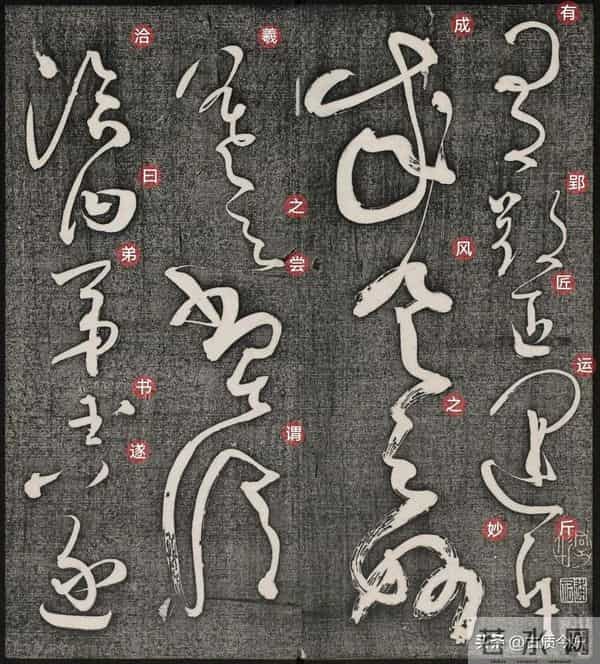 有郢匠运斤
成风之妙
羲之尝谓
洽曰弟书遂
头条 @古质今妍